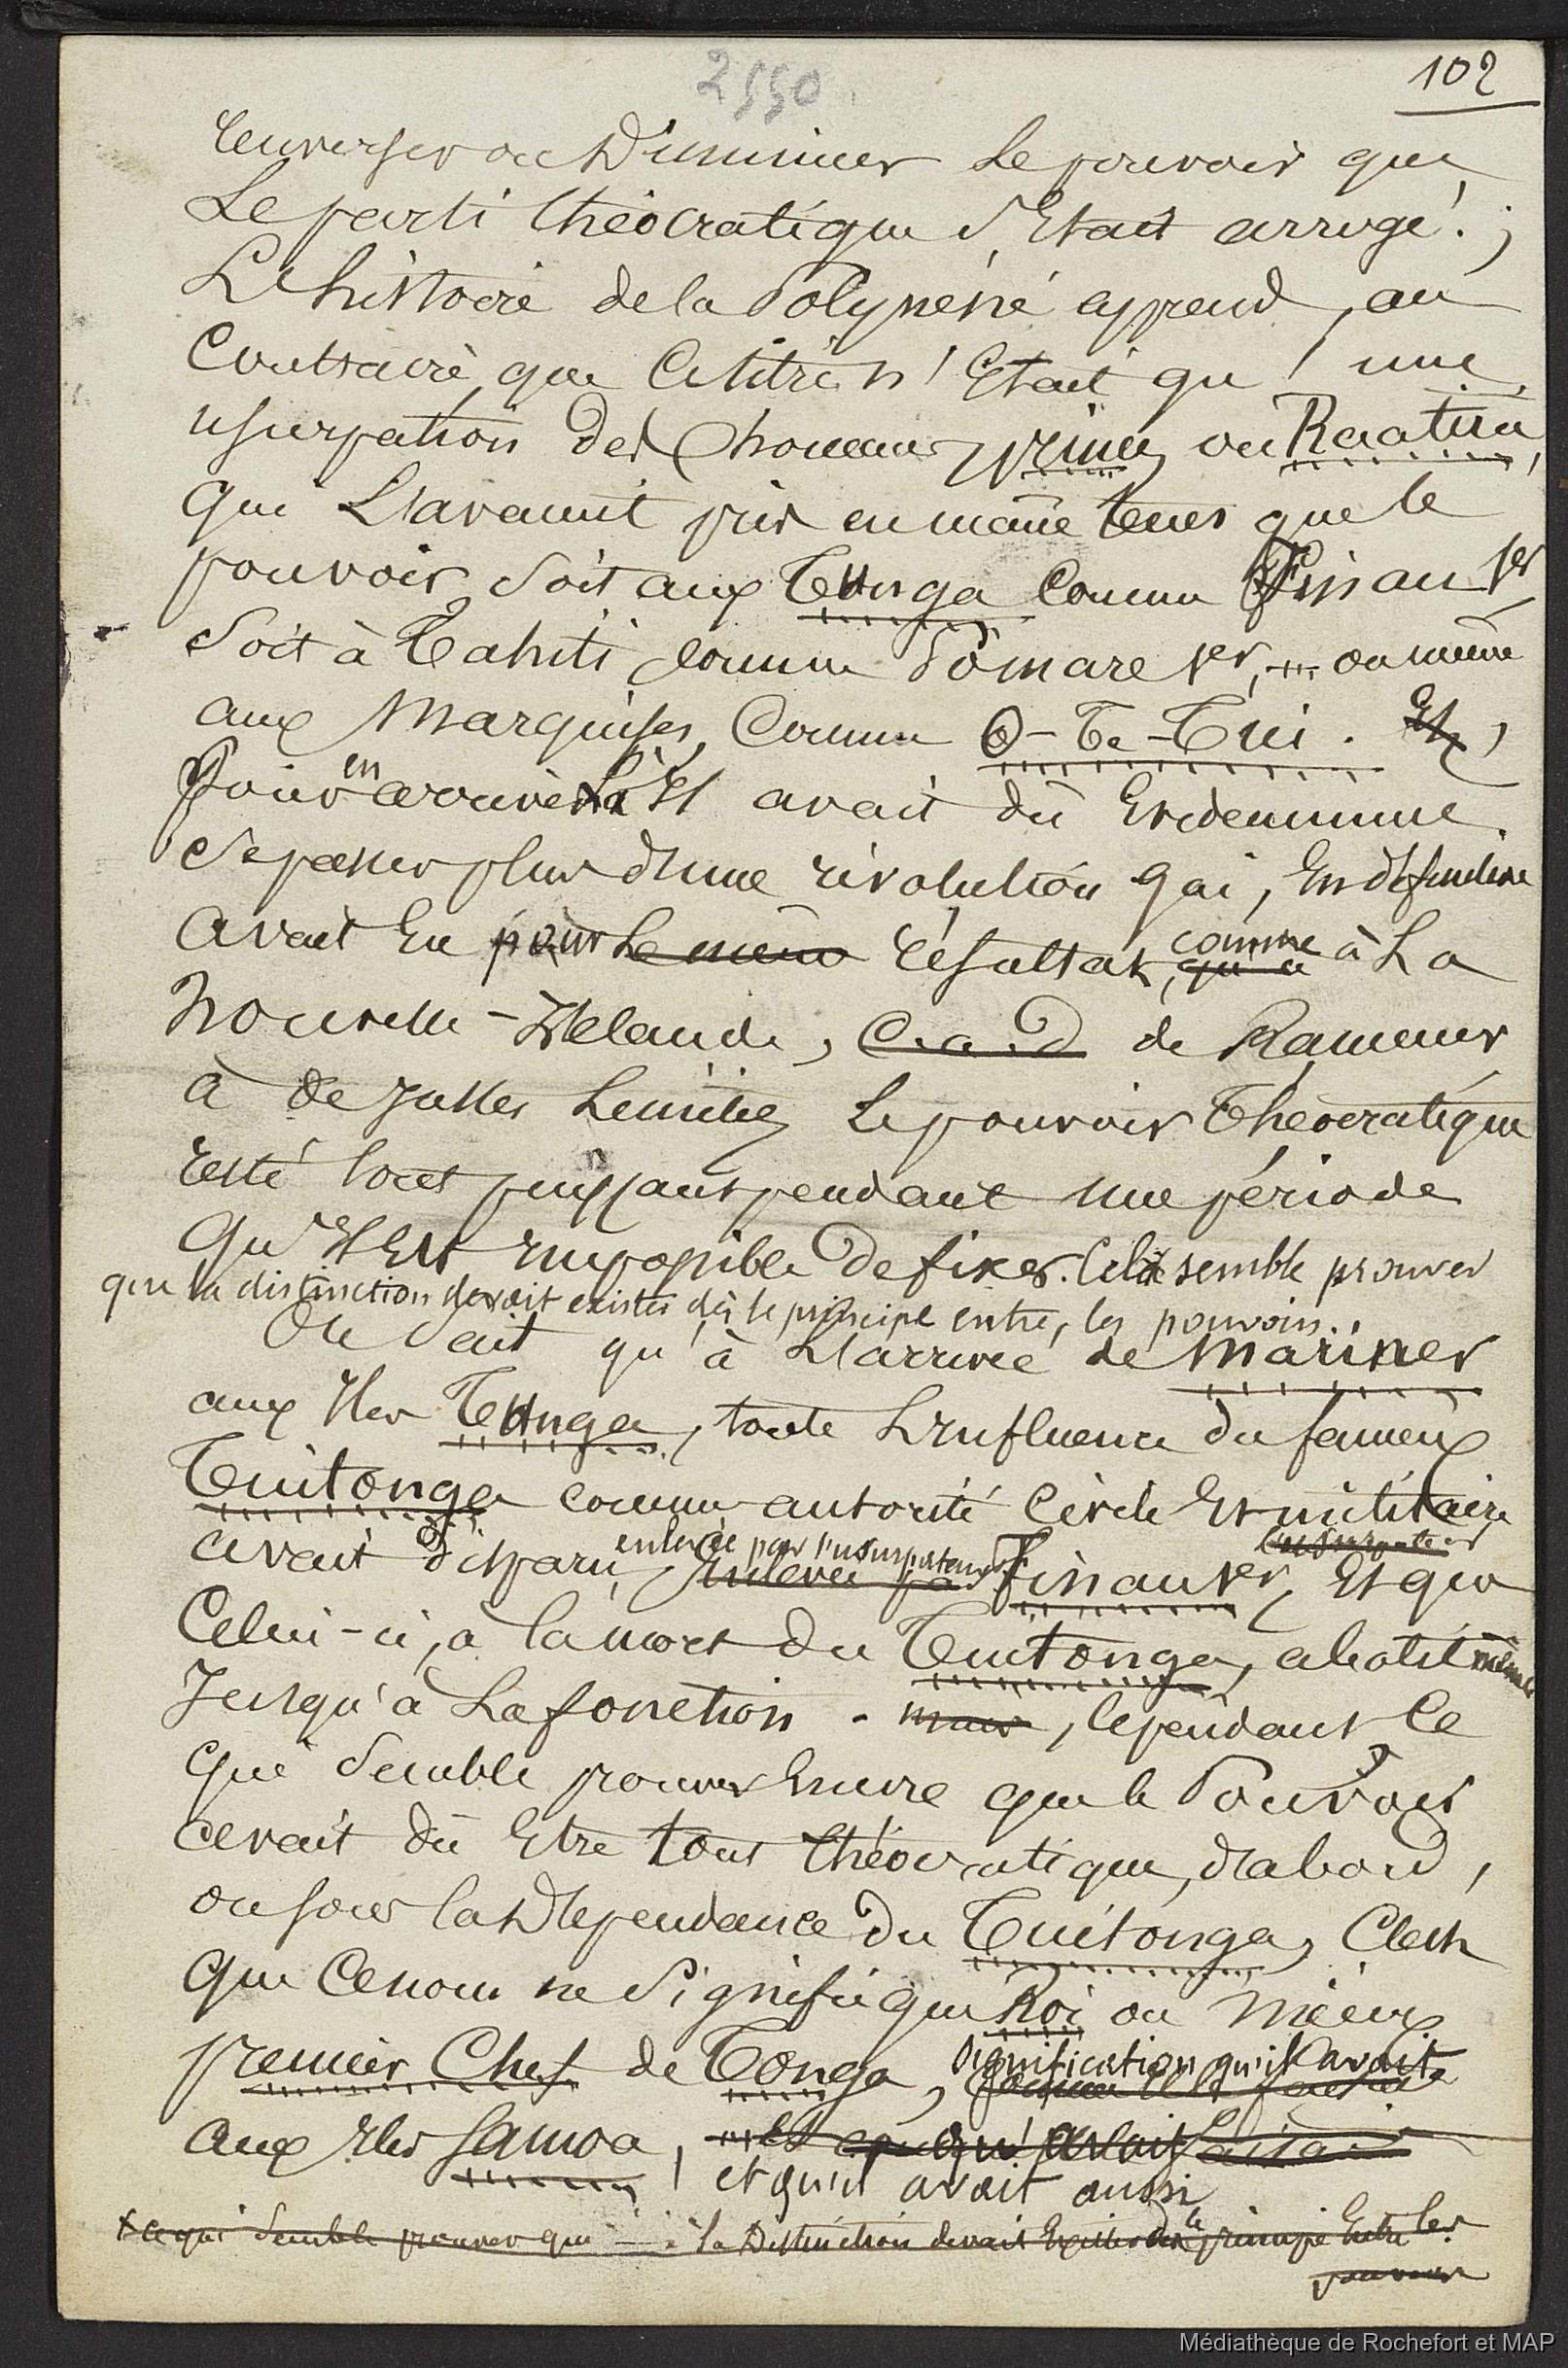 2550.
102
renverser ou diminuer le pouvoir que
le parti théocratique s'était arrogé.;
L'histoire de la Polynésie apprend, au
contraire, que ce titre n'était qu'une
usurpation des hommes, ou Raatira,
qui l'avaient pris en même temps que le
pouvoir, soit aux Tunga comme Finau 1er,
soit à Tahiti comme Pomare 1er, ou même
aux Marquises, comme O-Te-Tui. Et,
Pour en arriver là il avait dû évidemment
se passer plus d'une révolution qui, en définitive
avait eu pour le même résultat, qu'à comme à la
Nouvelle-Zelande, c.a.d de ramener
à de justes limites le pouvoir théocratique
resté tout puissant pendant une période
qu'il est impossible de fixer. Cela semble prouver
que la distinction devait exister dès le principe entre, les pouvoirs.
On sait qu'à l'arrivée de Mariner
aux Iles Tunga, toute l'influence du fameux
Tuitonga comme autorité civile et militaire
avait disparu, enlevée par l'usurpateur Finau 1er, et que
l'usurpateur
Celui-ci, à la mort du Tuitonga, abolit même
jusqu'à la fonction. mais, cependant ce
qui semble prouver encore que le Pouvoir
avait dû être tout théocratique, d'abord,
ou sous la dépendance du Tuitonga, c'est
que ce nom ne signifie que Roi ou mieux
premier Chef de Tonga, signification qu'il avait
aux Iles Samoa, et qu'avait
et qu'il avait aussi
+ ce qui semble prouver que la distinction devait exister dès le principe entre les
pouvoirs
Médiathèque de Rochefort et MAP